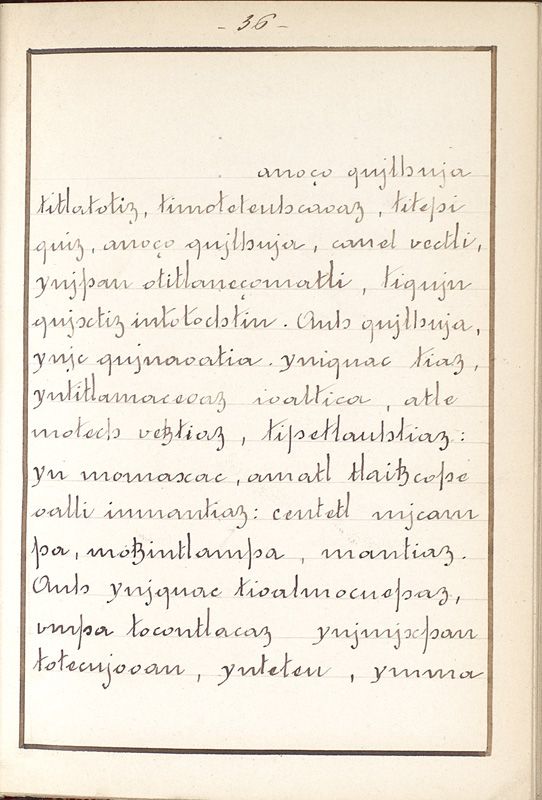 - 36 -
anoço qujlhuja
titlatotiz, timoteteuhcaoaz, titepi
quiz, anoço qujlhuja, canel vectli,
ynjpan otitlaneçomatli, tiqujn
qujxctiz intotochtin. Auh qujlhuja,
ynjc qujnaoatia. yniquac tiaz,
yntitlamaceoaz ioaltica, atle
motech vetztiaz, tipetlauhtiaz:
yn momaxac, amatl tlaitzcope
oalli inmantiaz: centetl mjcam
pa, motzintlampa, mantiaz.
Auh ynjquac tioalmocuepaz,
vmpa tocontlacaz ynjmjxpan
totecujooan, ynteteu, ymma